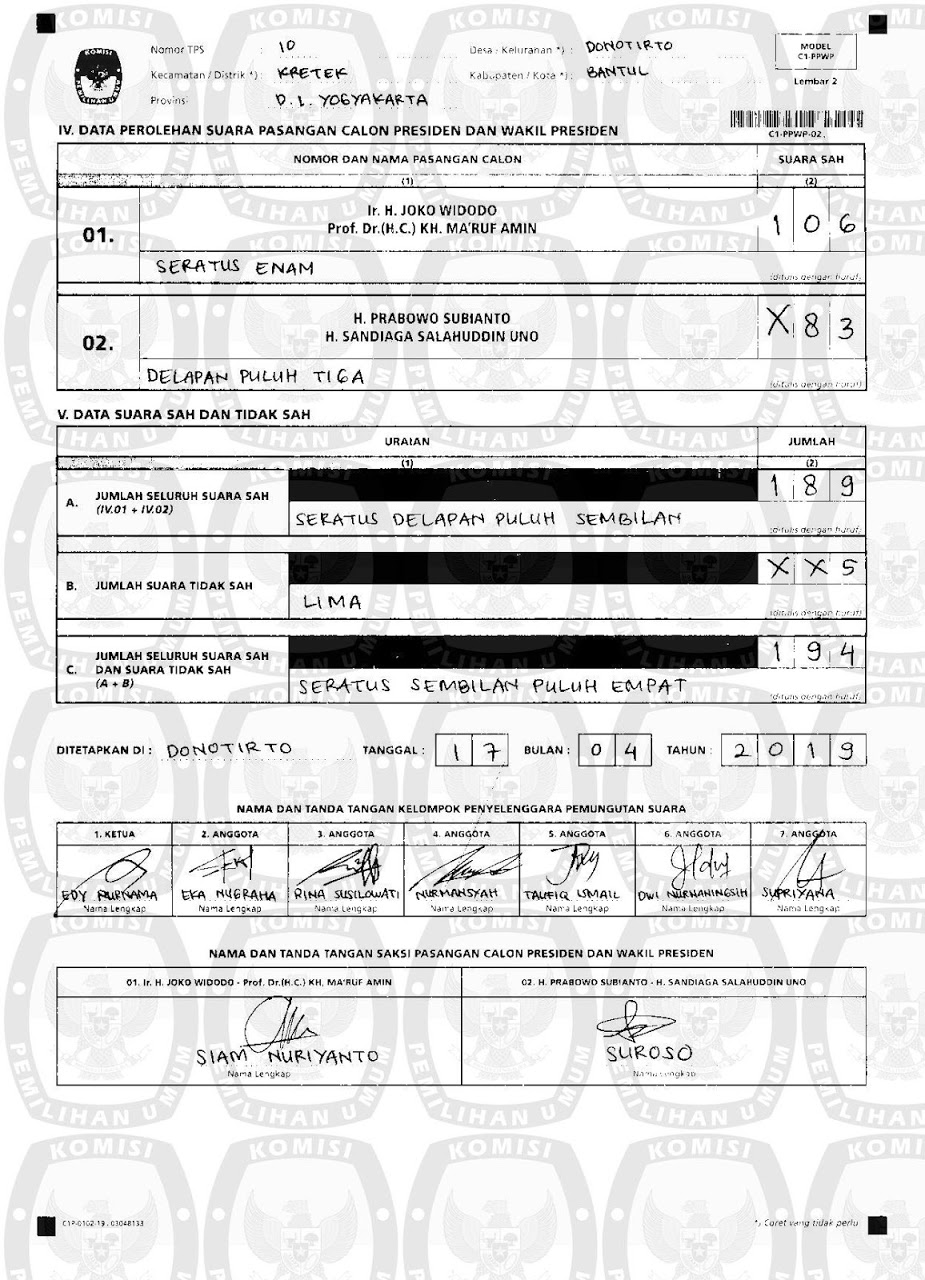 KOMISI PEMILIHAN UMUM
Nomor TPS : 10
Desa / Kelurahan *) : DONOTIRTO
Kecamatan / Distrik *) : KRETEK
Kabupaten / Kota *) : BANTUL
Provinsi D.I. YOGYAKARTA
MODEL
C1-PPWP
Lembar 2
C1-PPWP-02
IV. DATA PEROLEHAN SUARA PASANGAN CALON PRESIDEN DAN WAKIL PRESIDEN
NOMOR DAN NAMA PASANGAN CALON SUARA SAH
(1) (2)
01. Ir. H. JOKO WIDODO
Prof. Dr.(H.C.) KH. MA'RUF AMIN
1 0 6
SERATUS ENAM
(ditulis dengan huruf)
02. H. PRABOWO SUBIANTO
H. SANDIAGA SALAHUDDIN UNO
X 8 3
DELAPAN PULUH TIGA
(ditulis dengan huruf)
V. DATA SUARA SAH DAN TIDAK SAH
URAIAN JUMLAH
(1) (2)
A. JUMLAH SELURUH SUARA SAH
(IV.01 + IV.02)
1 8 9
SERATUS DELAPAN PULUH SEMBILAN
(ditulis dengan huruf)
B. JUMLAH SUARA TIDAK SAH
X X 5
LIMA
(ditulis dengan huruf)
C. JUMLAH SELURUH SUARA SAH
DAN SUARA TIDAK SAH
(A + B)
1 9 4
SERATUS SEMBILAN PULUH EMPAT
(ditulis dengan huruf)
DITETAPKAN DI : DONOTIRTO TANGGAL : 1 7 BULAN : 0 4 TAHUN : 2 0 1 9
NAMA DAN TANDA TANGAN KELOMPOK PENYELENGGARA PEMUNGUTAN SUARA
1. KETUA 2. ANGGOTA 3. ANGGOTA 4. ANGGOTA 5. ANGGOTA 6. ANGGOTA 7. ANGGOTA
EDY PURNAMA EKA NUGRAHA RINA SUSILOWATI NURMANSYAH TAUFIQ ISMAIL DWI NURHANINGSIH SUPRIYANA
Nama Lengkap Nama Lengkap Nama Lengkap Nama Lengkap Nama Lengkap Nama Lengkap Nama Lengkap
NAMA DAN TANDA TANGAN SAKSI PASANGAN CALON PRESIDEN DAN WAKIL PRESIDEN
01. Ir. H. JOKO WIDODO - Prof. Dr.(H.C.) KH. MA'RUF AMIN 02. H. PRABOWO SUBIANTO - H. SANDIAGA SALAHUDDIN UNO
SIAM NURIYANTO SUROSO
Nama Lengkap Nama Lengkap
C1P-0102-19 , 03048133
*) Coret yang tidak perlu